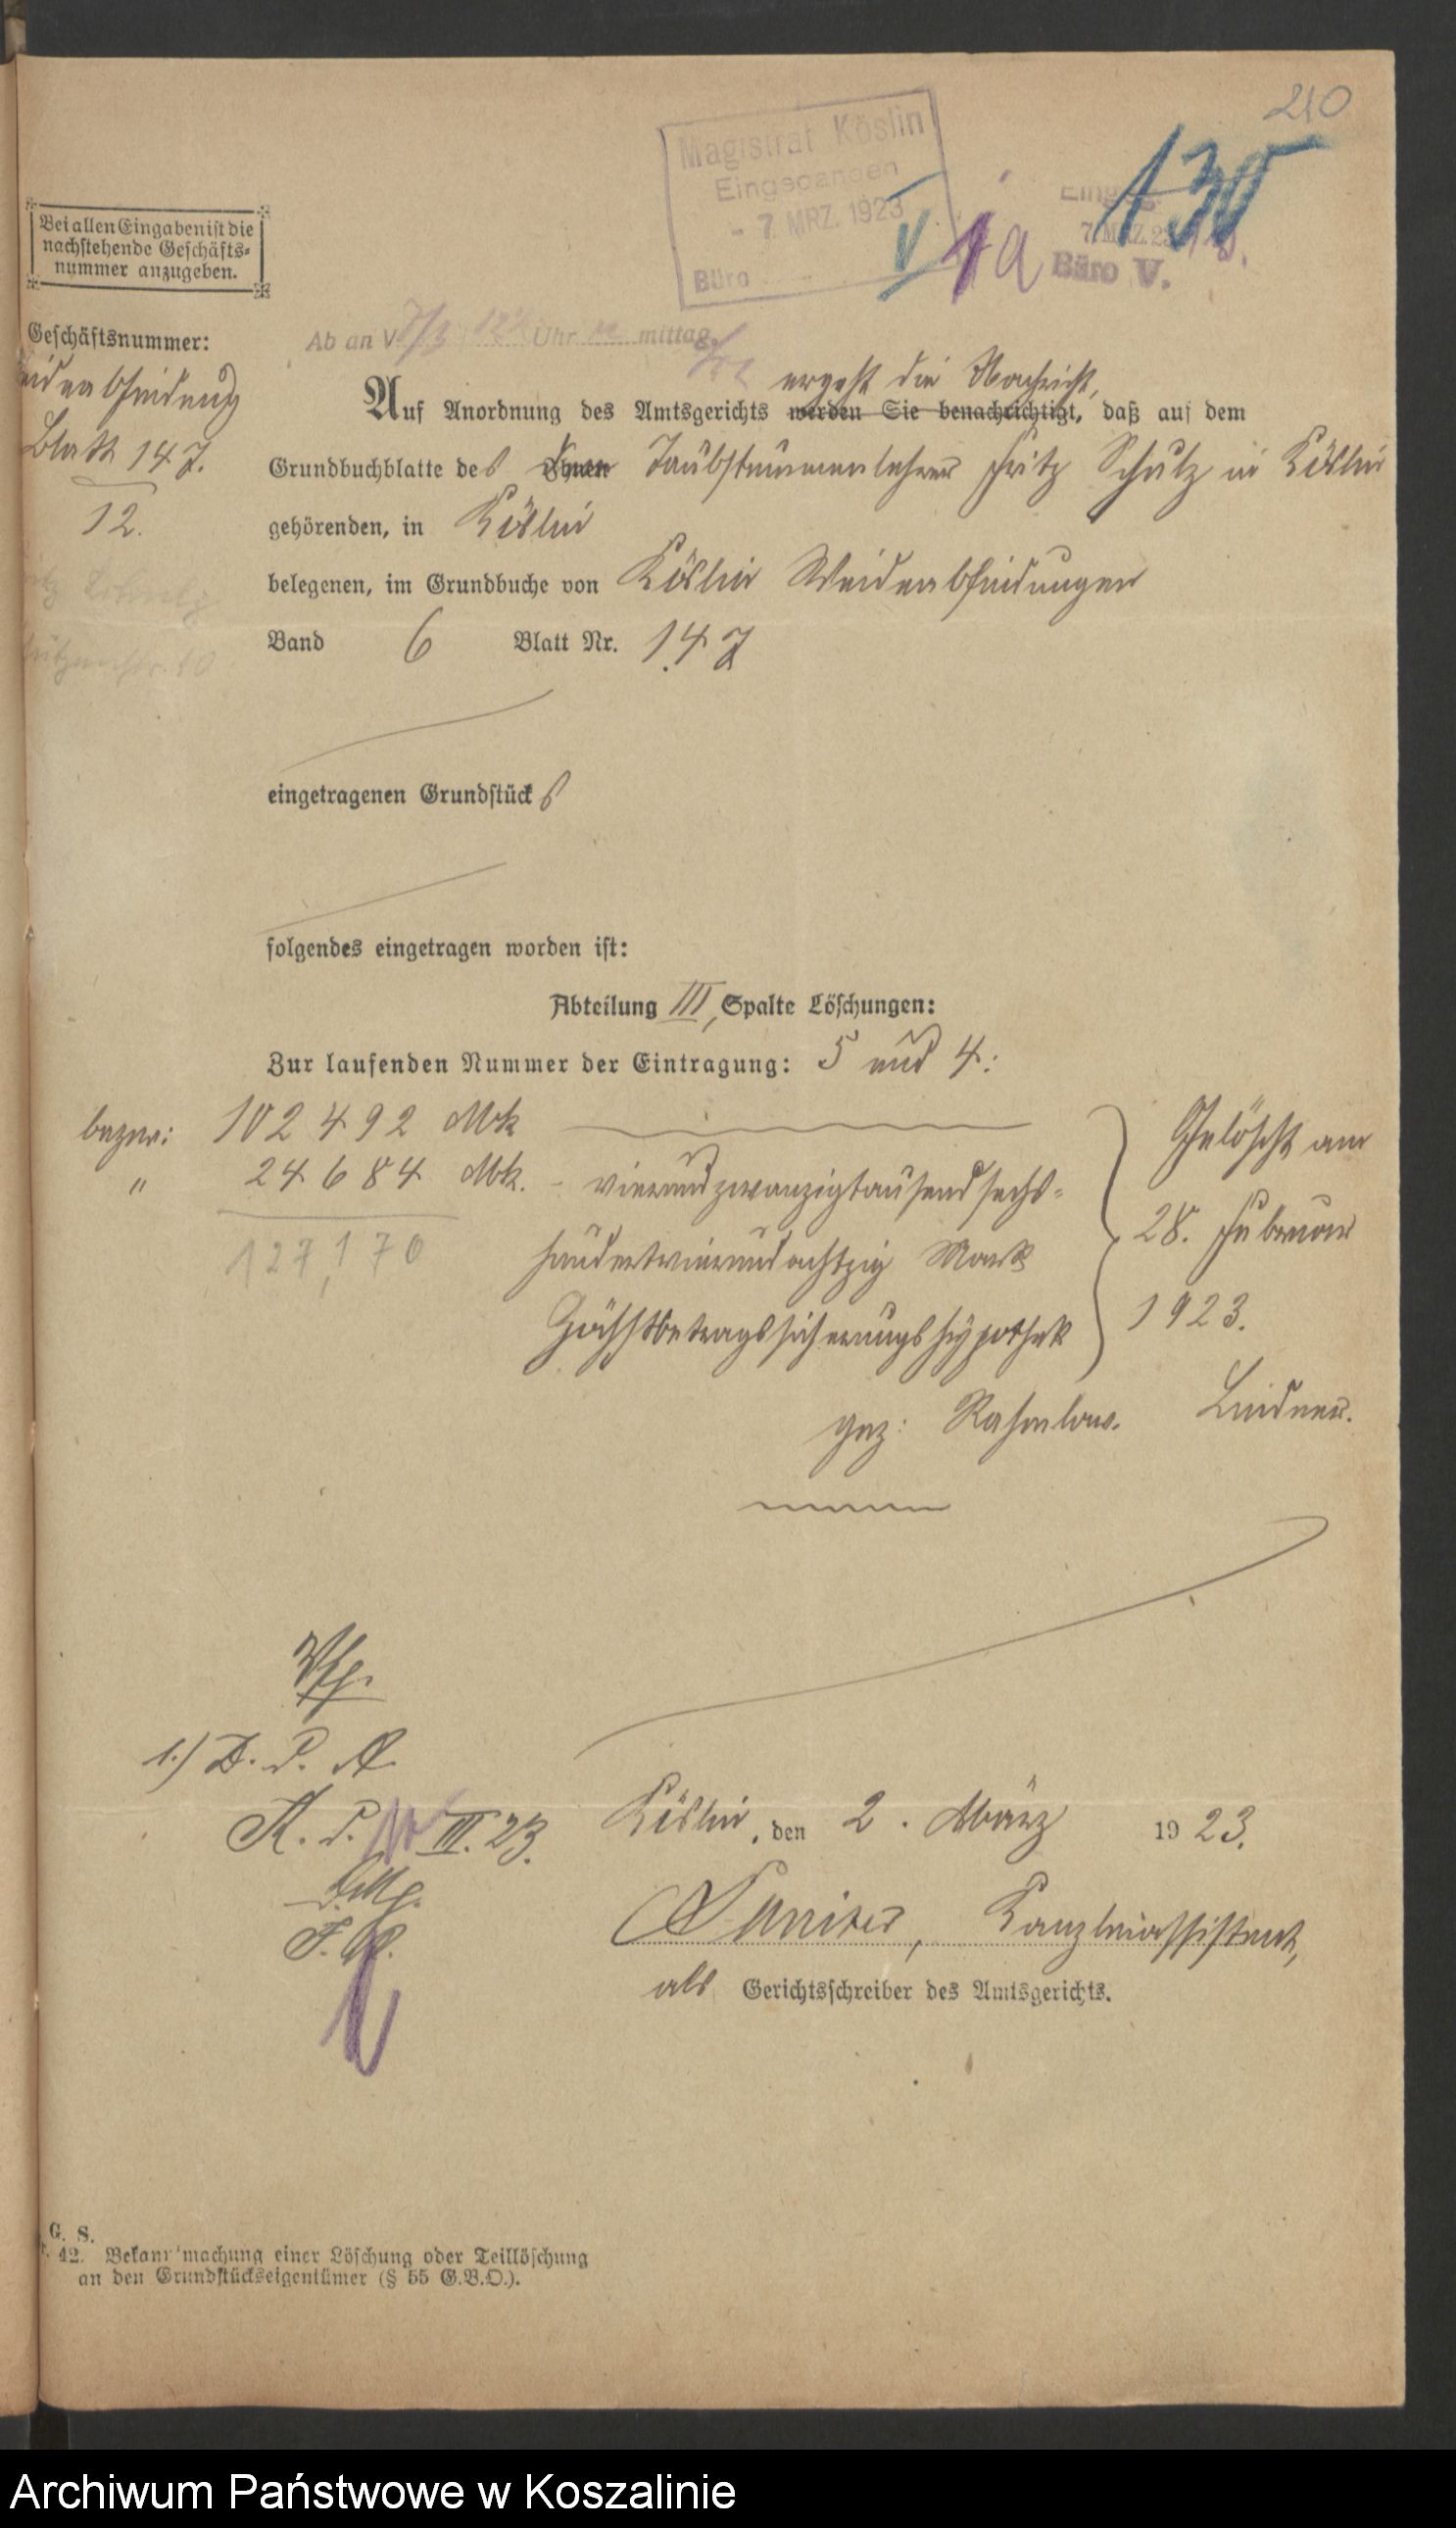 210
Magistrat Köslin
Eingegangen
- 7. MRZ. 1923
Büro
V
1a
130
Büro V.
Bei allen Eingaben ist die
nachstehende Geschäfts-
nummer anzugeben.
Geschäftsnummer:
Blatt 147.
12.
Ab an V 7/3 Uhr mittag
ergeht die Nachricht,
Auf Anordnung des Amtsgerichts werden Sie benachrichtigt, daß auf dem
Grundbuchblatte des Ihnen Taubstummenlehrer Fritz Schulz in Köslin
gehörenden, in Köslin
belegenen, im Grundbuche von Köslin Weidenabfindungen
Band 6 Blatt Nr. 147
eingetragenen Grundstücks
folgendes eingetragen worden ist:
Abteilung III, Spalte Löschungen:
Zur laufenden Nummer der Eintragung: 5 und 4:
bezw: 102 492 Mk
" 24 684 Mk. - vierundzwanzigtausendsechs-
127,170 hundertvierundachtzig Mark
Höchstbetragssicherungshypothek
Gelöscht am
28. Februar
1923.
gez: Rahmlow. Lindner.
Vfg.
1.) Z. d. A.
K. d. III. 23.
D. Mg.
J. V.
Köslin, den 2. März 1923.
Kanzleiassistent,
als Gerichtsschreiber des Amtsgerichts.
G. S.
42. Bekanntmachung einer Löschung oder Teillöschung
an den Grundstückseigentümer (§ 55 G.B.O.).
Archiwum Państwowe w Koszalinie